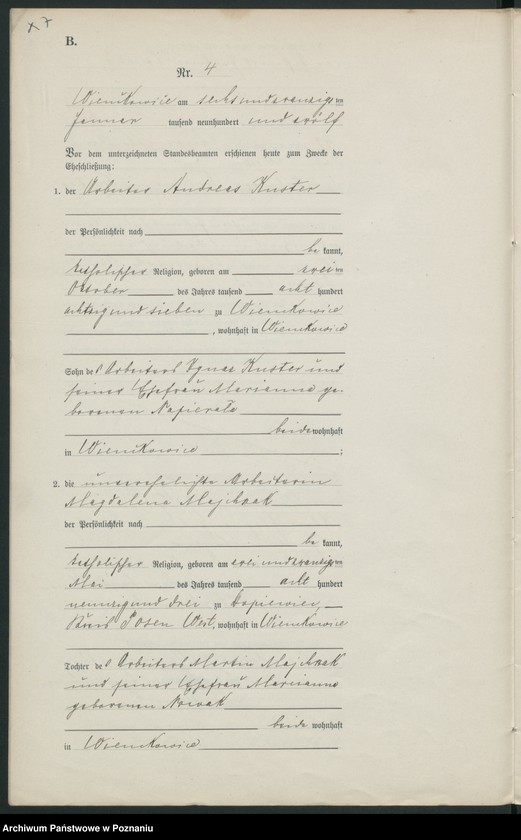 x 7
B.
Nr. 4
Wienckowice am sechsundzwanzigsten
Januar tausend neunhundert und zwölf
Vor dem unterzeichneten Standesbeamten erschienen heute zum Zwecke der
Eheschließung:
1. der Arbeiter Andreas Kuster
der Persönlichkeit nach
be kannt,
katholischer Religion, geboren am drei ten
Oktober des Jahres tausend acht hundert
achtzig und sieben zu Wienckowice
, wohnhaft in Wienckowice
Sohn des Arbeiters Ignaz Kuster und
seiner Ehefrau Marianna ge-
borenen Napierala
beide wohnhaft
in Wienckowice ;
2. die unverehelichte Arbeiterin
Magdalena Majchrzak
der Persönlichkeit nach
be kannt,
katholischer Religion, geboren am
Mai des Jahres tausend acht hundert
neunzig und drei zu Kopiewiec,
Kreis Posen West, wohnhaft in Wienckowice
Tochter des Arbeiters Martin Majchrzak
und seiner Ehefrau Marianna
geborenen Nowak
beide wohnhaft
in Wienckowice
Archiwum Państwowe w Poznaniu